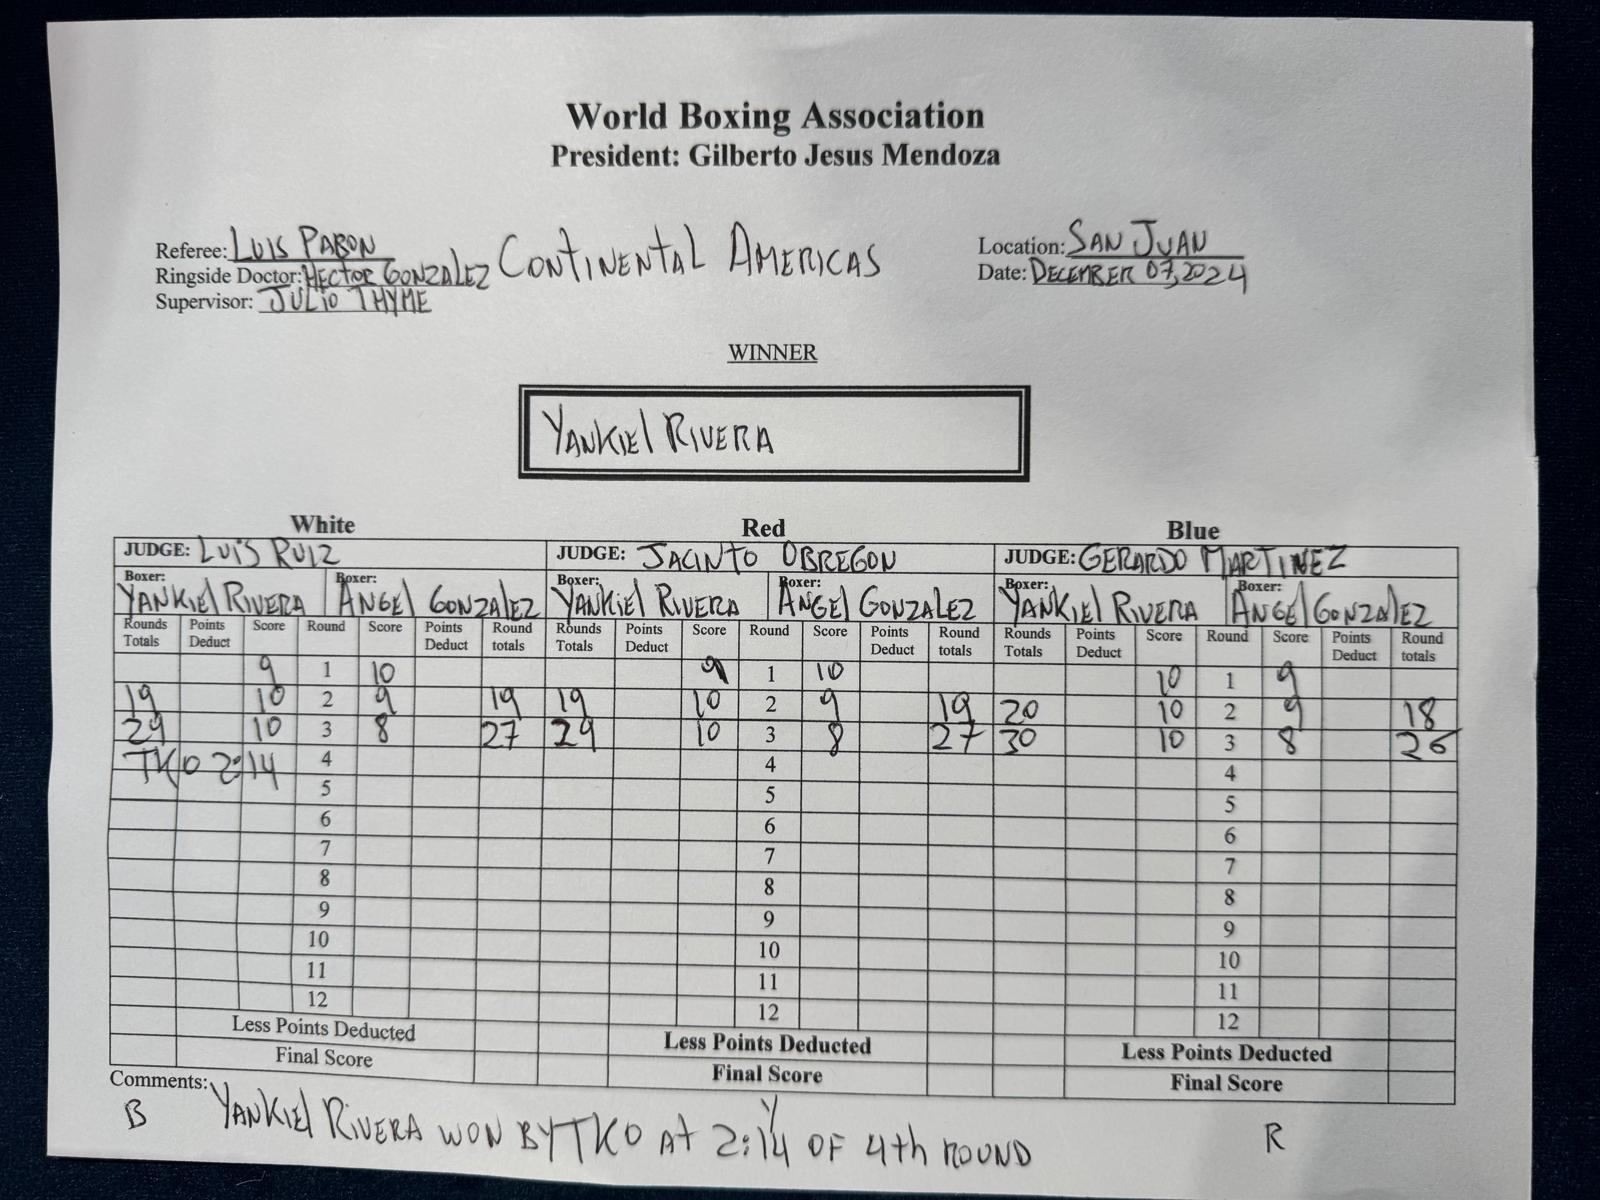 World Boxing Association
President: Gilberto Jesus Mendoza
Referee: LUIS PABON
Ringside Doctor: HECTOR GONZALEZ
Supervisor: JULIO THYME
CONTINENTAL AMERICAS
Location: SAN JUAN
Date: DECEMBER 07, 2024
WINNER
YANKIEL RIVERA
White Red Blue
JUDGE: LUIS RUIZ JUDGE: JACINTO OBREGON JUDGE: GERARDO MARTINEZ
Boxer: YANKIEL RIVERA Boxer: ANGEL GONZALEZ Boxer: YANKIEL RIVERA Boxer: ANGEL GONZALEZ Boxer: YANKIEL RIVERA Boxer: ANGEL GONZALEZ
Rounds Totals Points Deduct Score Round Score Points Deduct Round totals Rounds Totals Points Deduct Score Round Score Points Deduct Round totals Rounds Totals Points Deduct Score Round Score Points Deduct Round totals
9 1 10 9 1 10 10 1 9
19 10 2 9 19 19 10 2 9 19 20 10 2 9 18
29 10 3 8 27 29 10 3 8 27 30 10 3 8 26
TKO 2:14 4 4 4
5 5 5
6 6 6
7 7 7
8 8 8
9 9 9
10 10 10
11 11 11
12 12 12
Less Points Deducted Less Points Deducted Less Points Deducted
Final Score Final Score Final Score
Comments:
B YANKIEL RIVERA WON BY TKO AT 2:14 OF 4th ROUND R